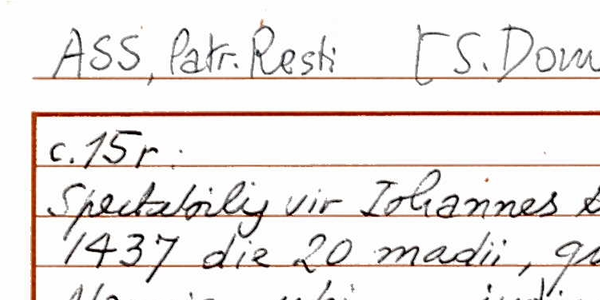 ASS, Patr. Resti [S. Dom
c.15r.
Spectabilis vir Iohannes
1437 die 20 madii,